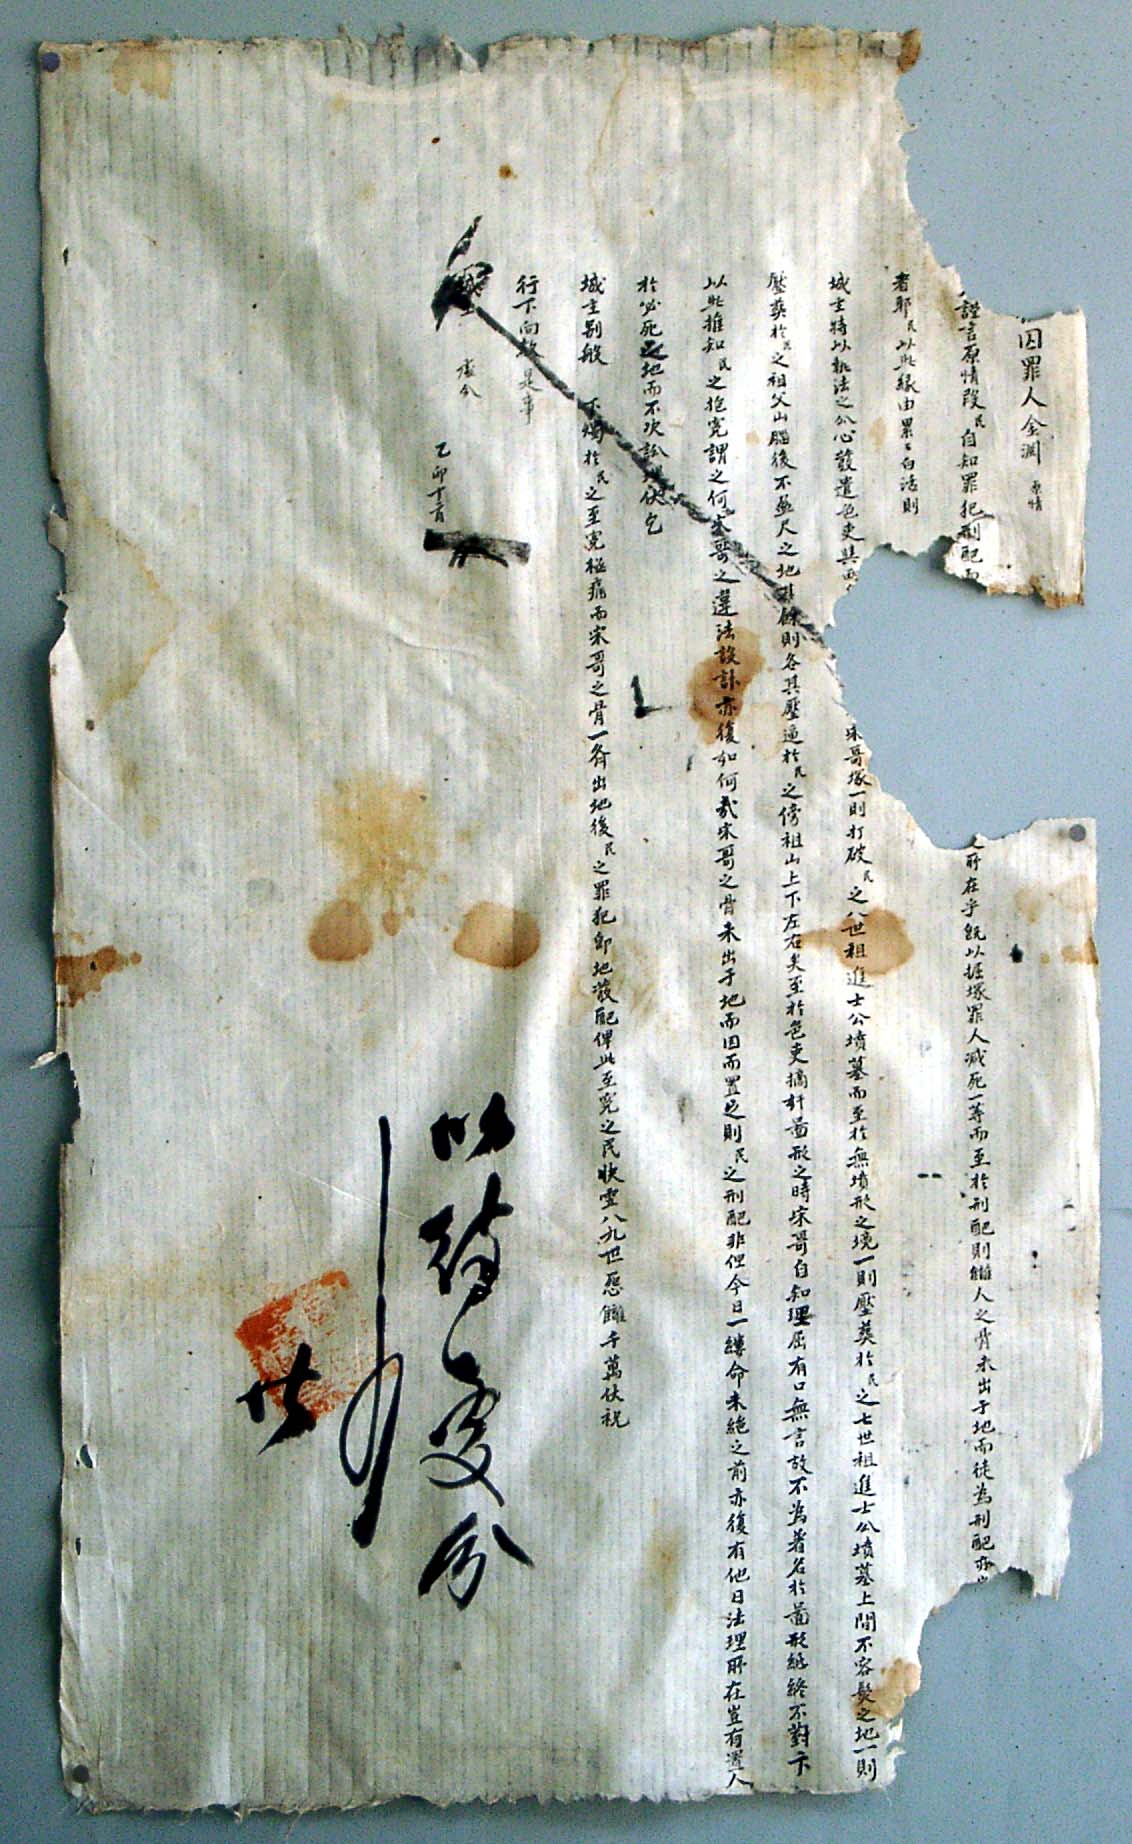 囚罪人金淵 原情
謹言原情段民自知罪犯刑配而 之所在乎旣以掘塚罪人减死一等而至於刑配則讎人之骨未出于地而徒為刑配亦
者耶民以此緣由累〻白活則
城主特以執法之公心發遣色吏與 宋哥塚一則打破民之八世祖進士公墳墓而至於無墳形之境一則壓葬於民之七世祖進士公墳墓上間不容髮之地一則
壓葬於民之祖父山腦後不盈尺之地其餘則各其壓逼於民之傍祖山上下左右矣至於色吏摘奸圖形之時宋哥自知理屈有口無言故不為着名於圖形終不對卞
以此推知民之抱寃謂之何宋哥之違法設計亦復如何哉宋哥之骨未出于地而因而置之則民之刑配非但今日一縷命未絶之前亦復有他日法理所在豈有置人
於必死之地而不決訟 伏乞
城主別般 下燭於民之至寃極痛而宋哥之骨一齊出地後民之罪犯卽地發配俾此至寃之民快雪八九世惡讎千萬伏祝
行下向敎是事
處分
乙卯十二月
以待處分
廿